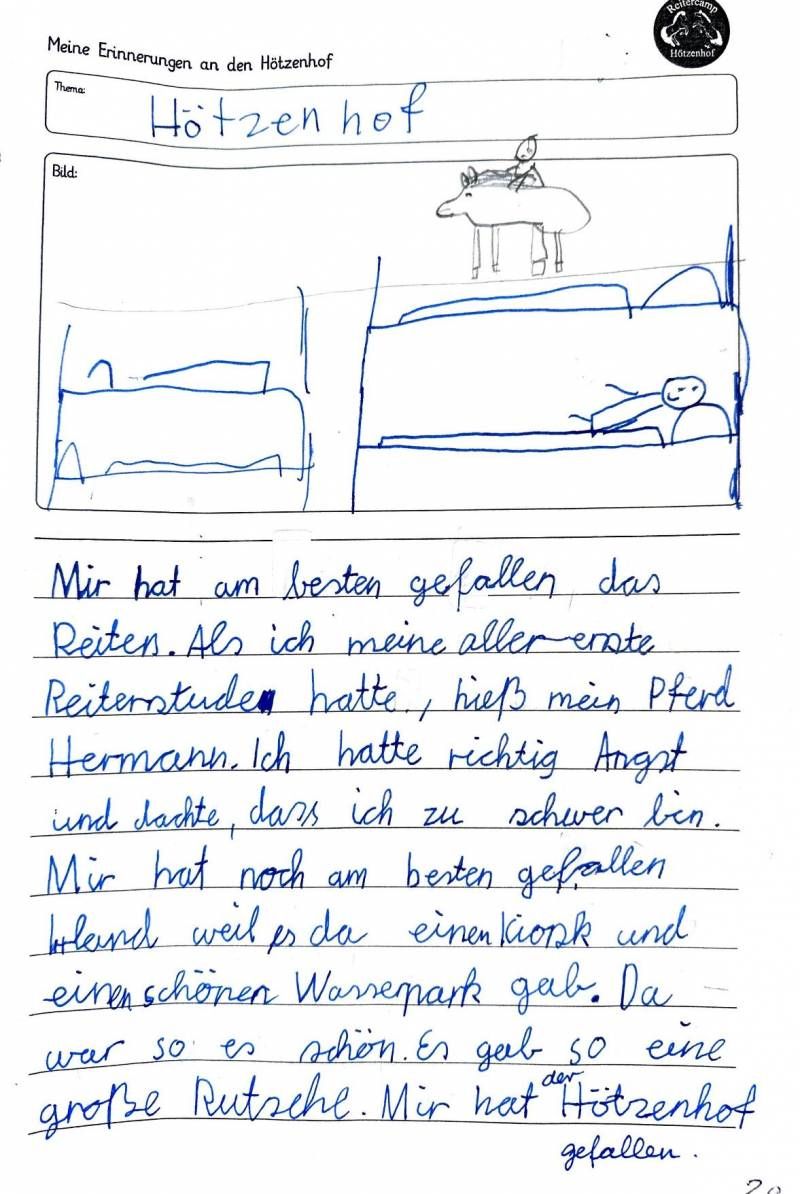 Meine Erinnerungen an den Hötzenhof
Reitercamp
Hötzenhof
Thema:
Hötzenhof
Bild:
Mir hat am besten gefallen das
Reiten. Als ich meine aller erste
Reiterstude hatte, hieß mein Pferd
Hermann. Ich hatte richtig Angst
und dachte, dass ich zu schwer bin.
Mir hat noch am besten gefallen
weil es da einen Kiosk und
einen schönen Wasserpark gab. Da
war so es schön. Es gab so eine
große Rutsche. Mir hat der Hötzenhof
gefallen.